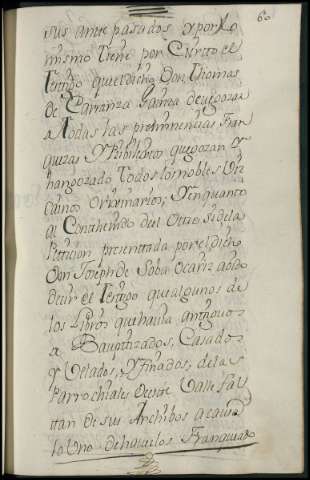 60
sus ante pasados y por lo
mismo tiene por Cierto el
testigo que el dicho Don Thomas
de Carranza Gamoa deve gozar
a todas las preheminencias Fran
quezas y Privilexios que gozan y
han gozado Todos los nobles Viz
cainos Orixinarios; y en quanto
al Conthenido del Otro si de la
Peticion presentada por el dicho
Don Joseph de Soba Ocariz a oido
decir el testigo que algunos de
los Libros que havia antiguos
a Bauptizados, Casados
y Velados, y Finados, de las
Parrochiales de este Valle fal
tan de sus Archibos a causa
lo Uno de haverlos Franquia